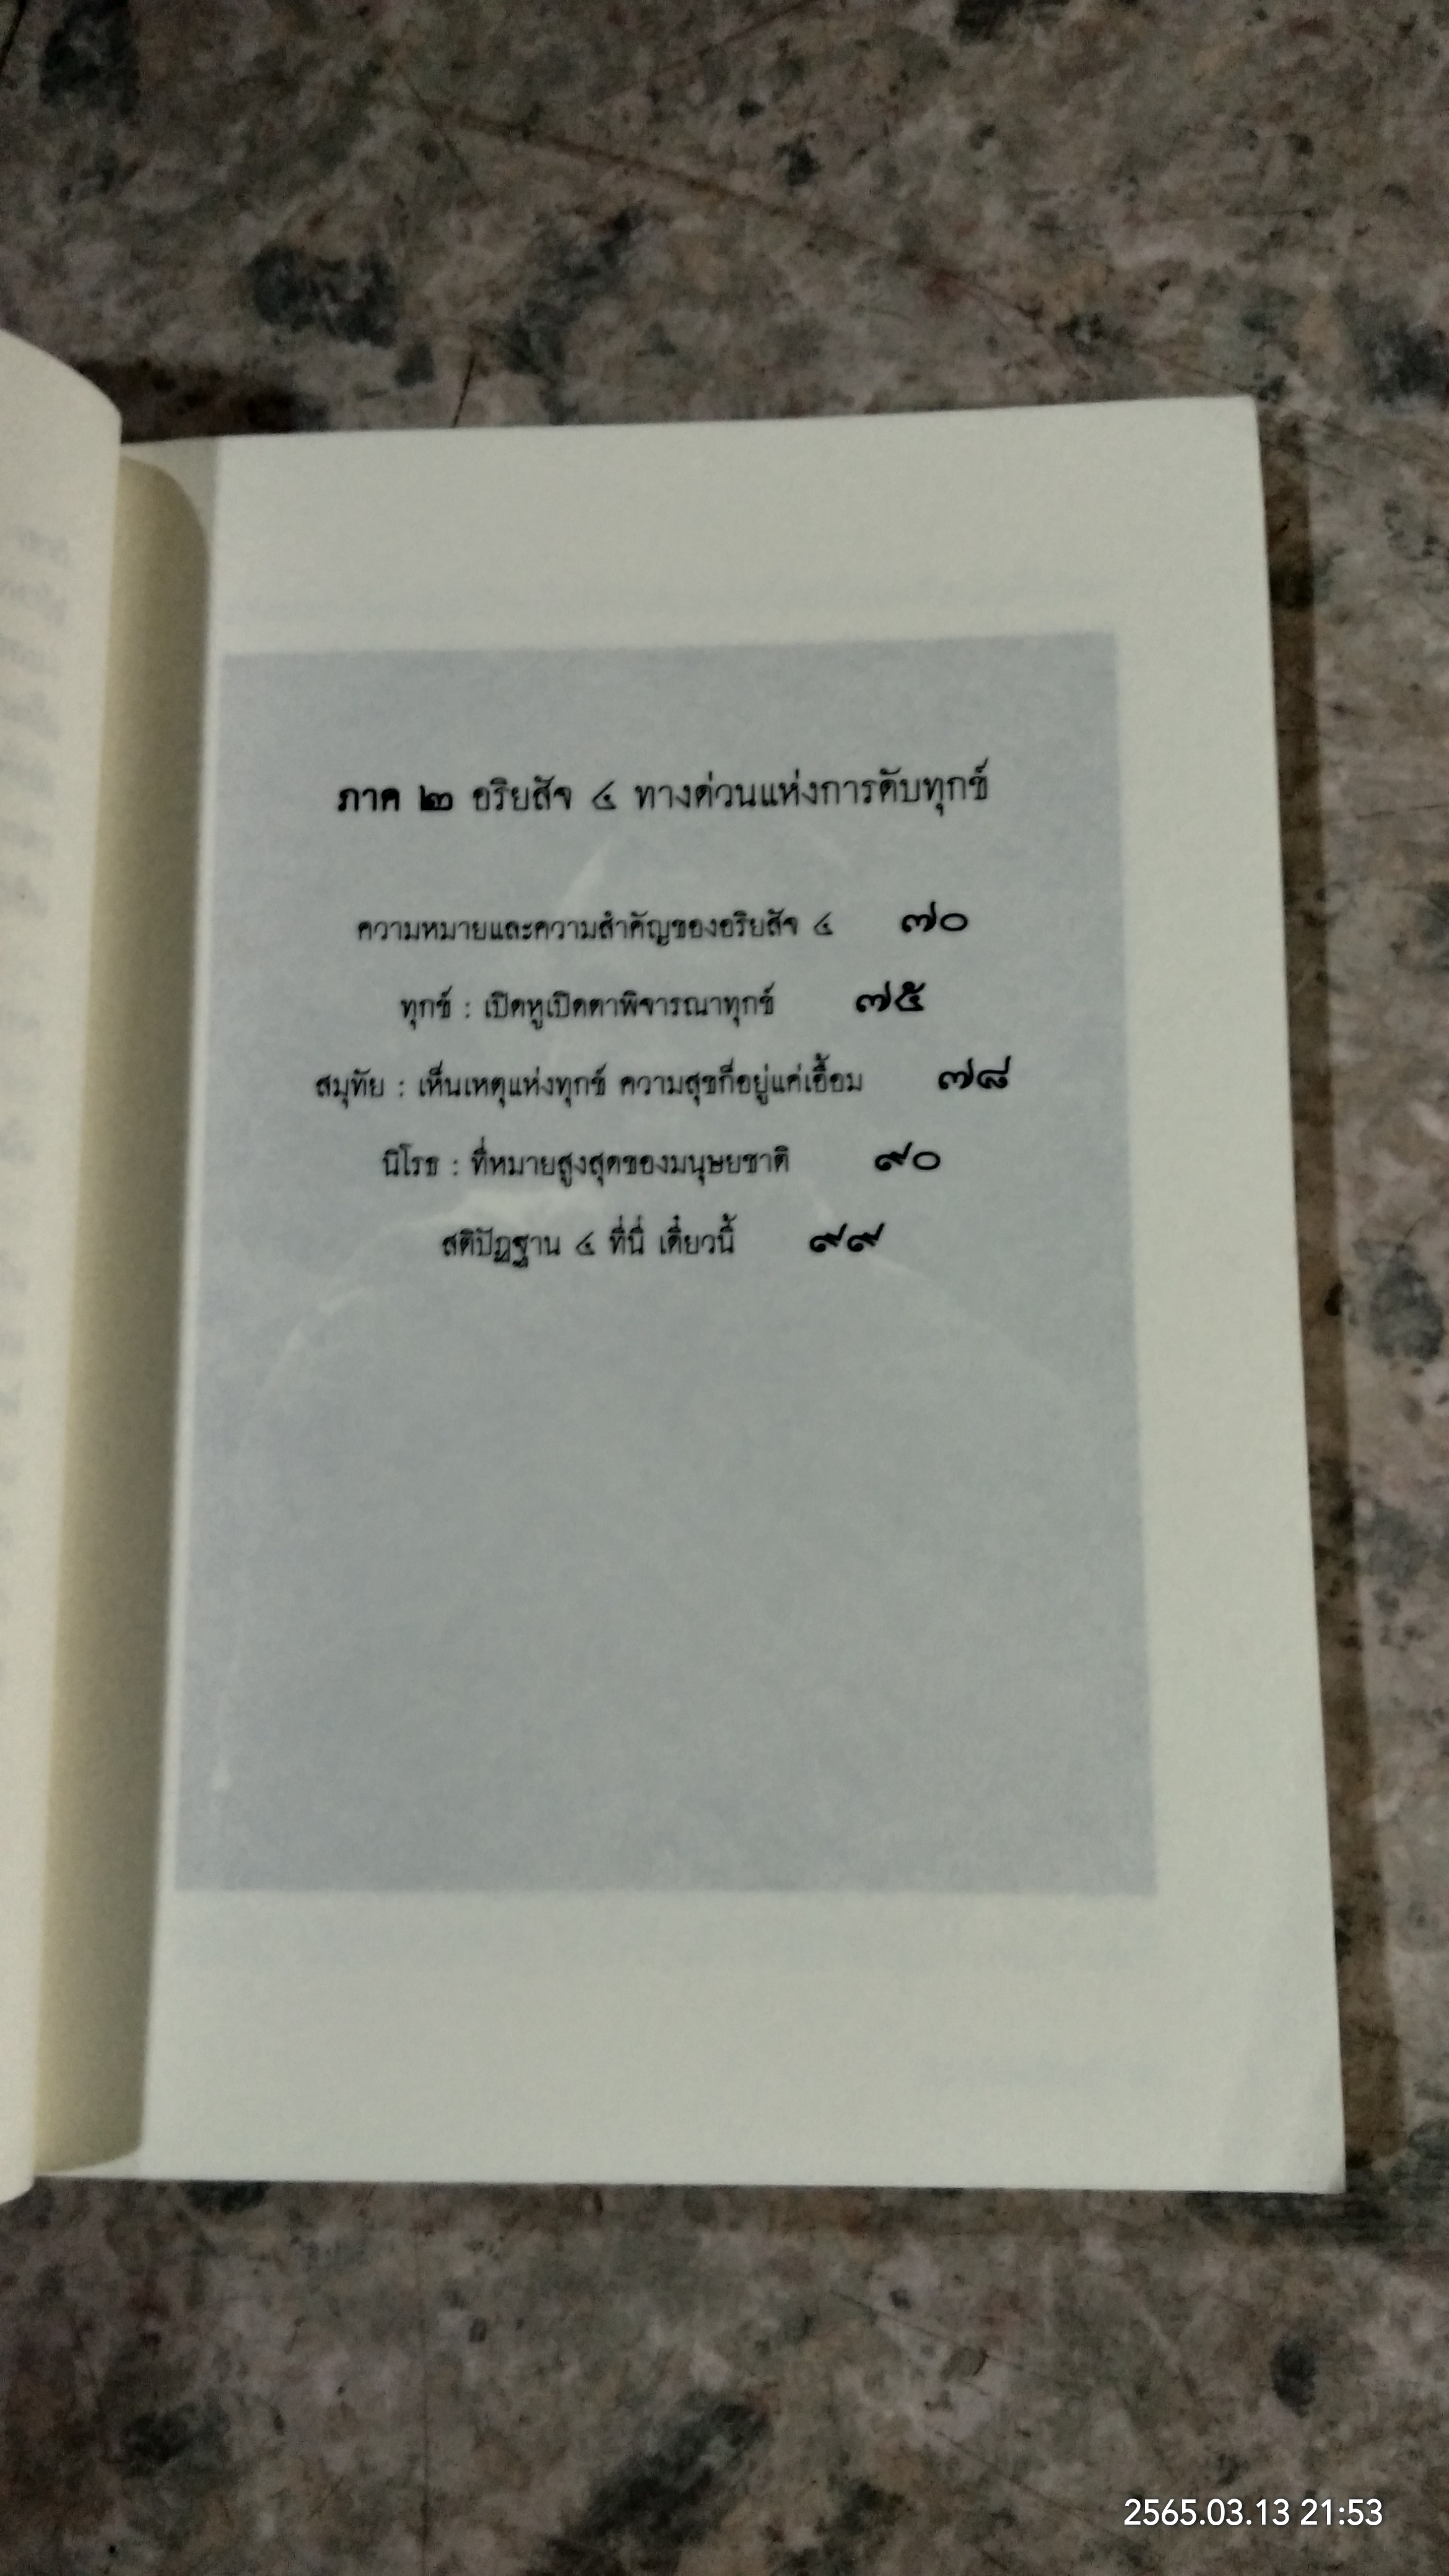 ภาค ๒ อริยสัจ ๔ ทางด่วนแห่งการดับทุกข์
ความหมายและความสำคัญของอริยสัจ ๔ ๗๐
ทุกข์ : เปิดหูเปิดตาพิจารณาทุกข์ ๗๕
สมุทัย : เห็นเหตุแห่งทุกข์ ความสุขก็อยู่แค่เอื้อม ๗๘
นิโรธ : ที่หมายสูงสุดของมนุษยชาติ ๙๐
สติปัฏฐาน ๔ ที่นี่ เดี๋ยวนี้ ๙๙
2565.03.13 21:53